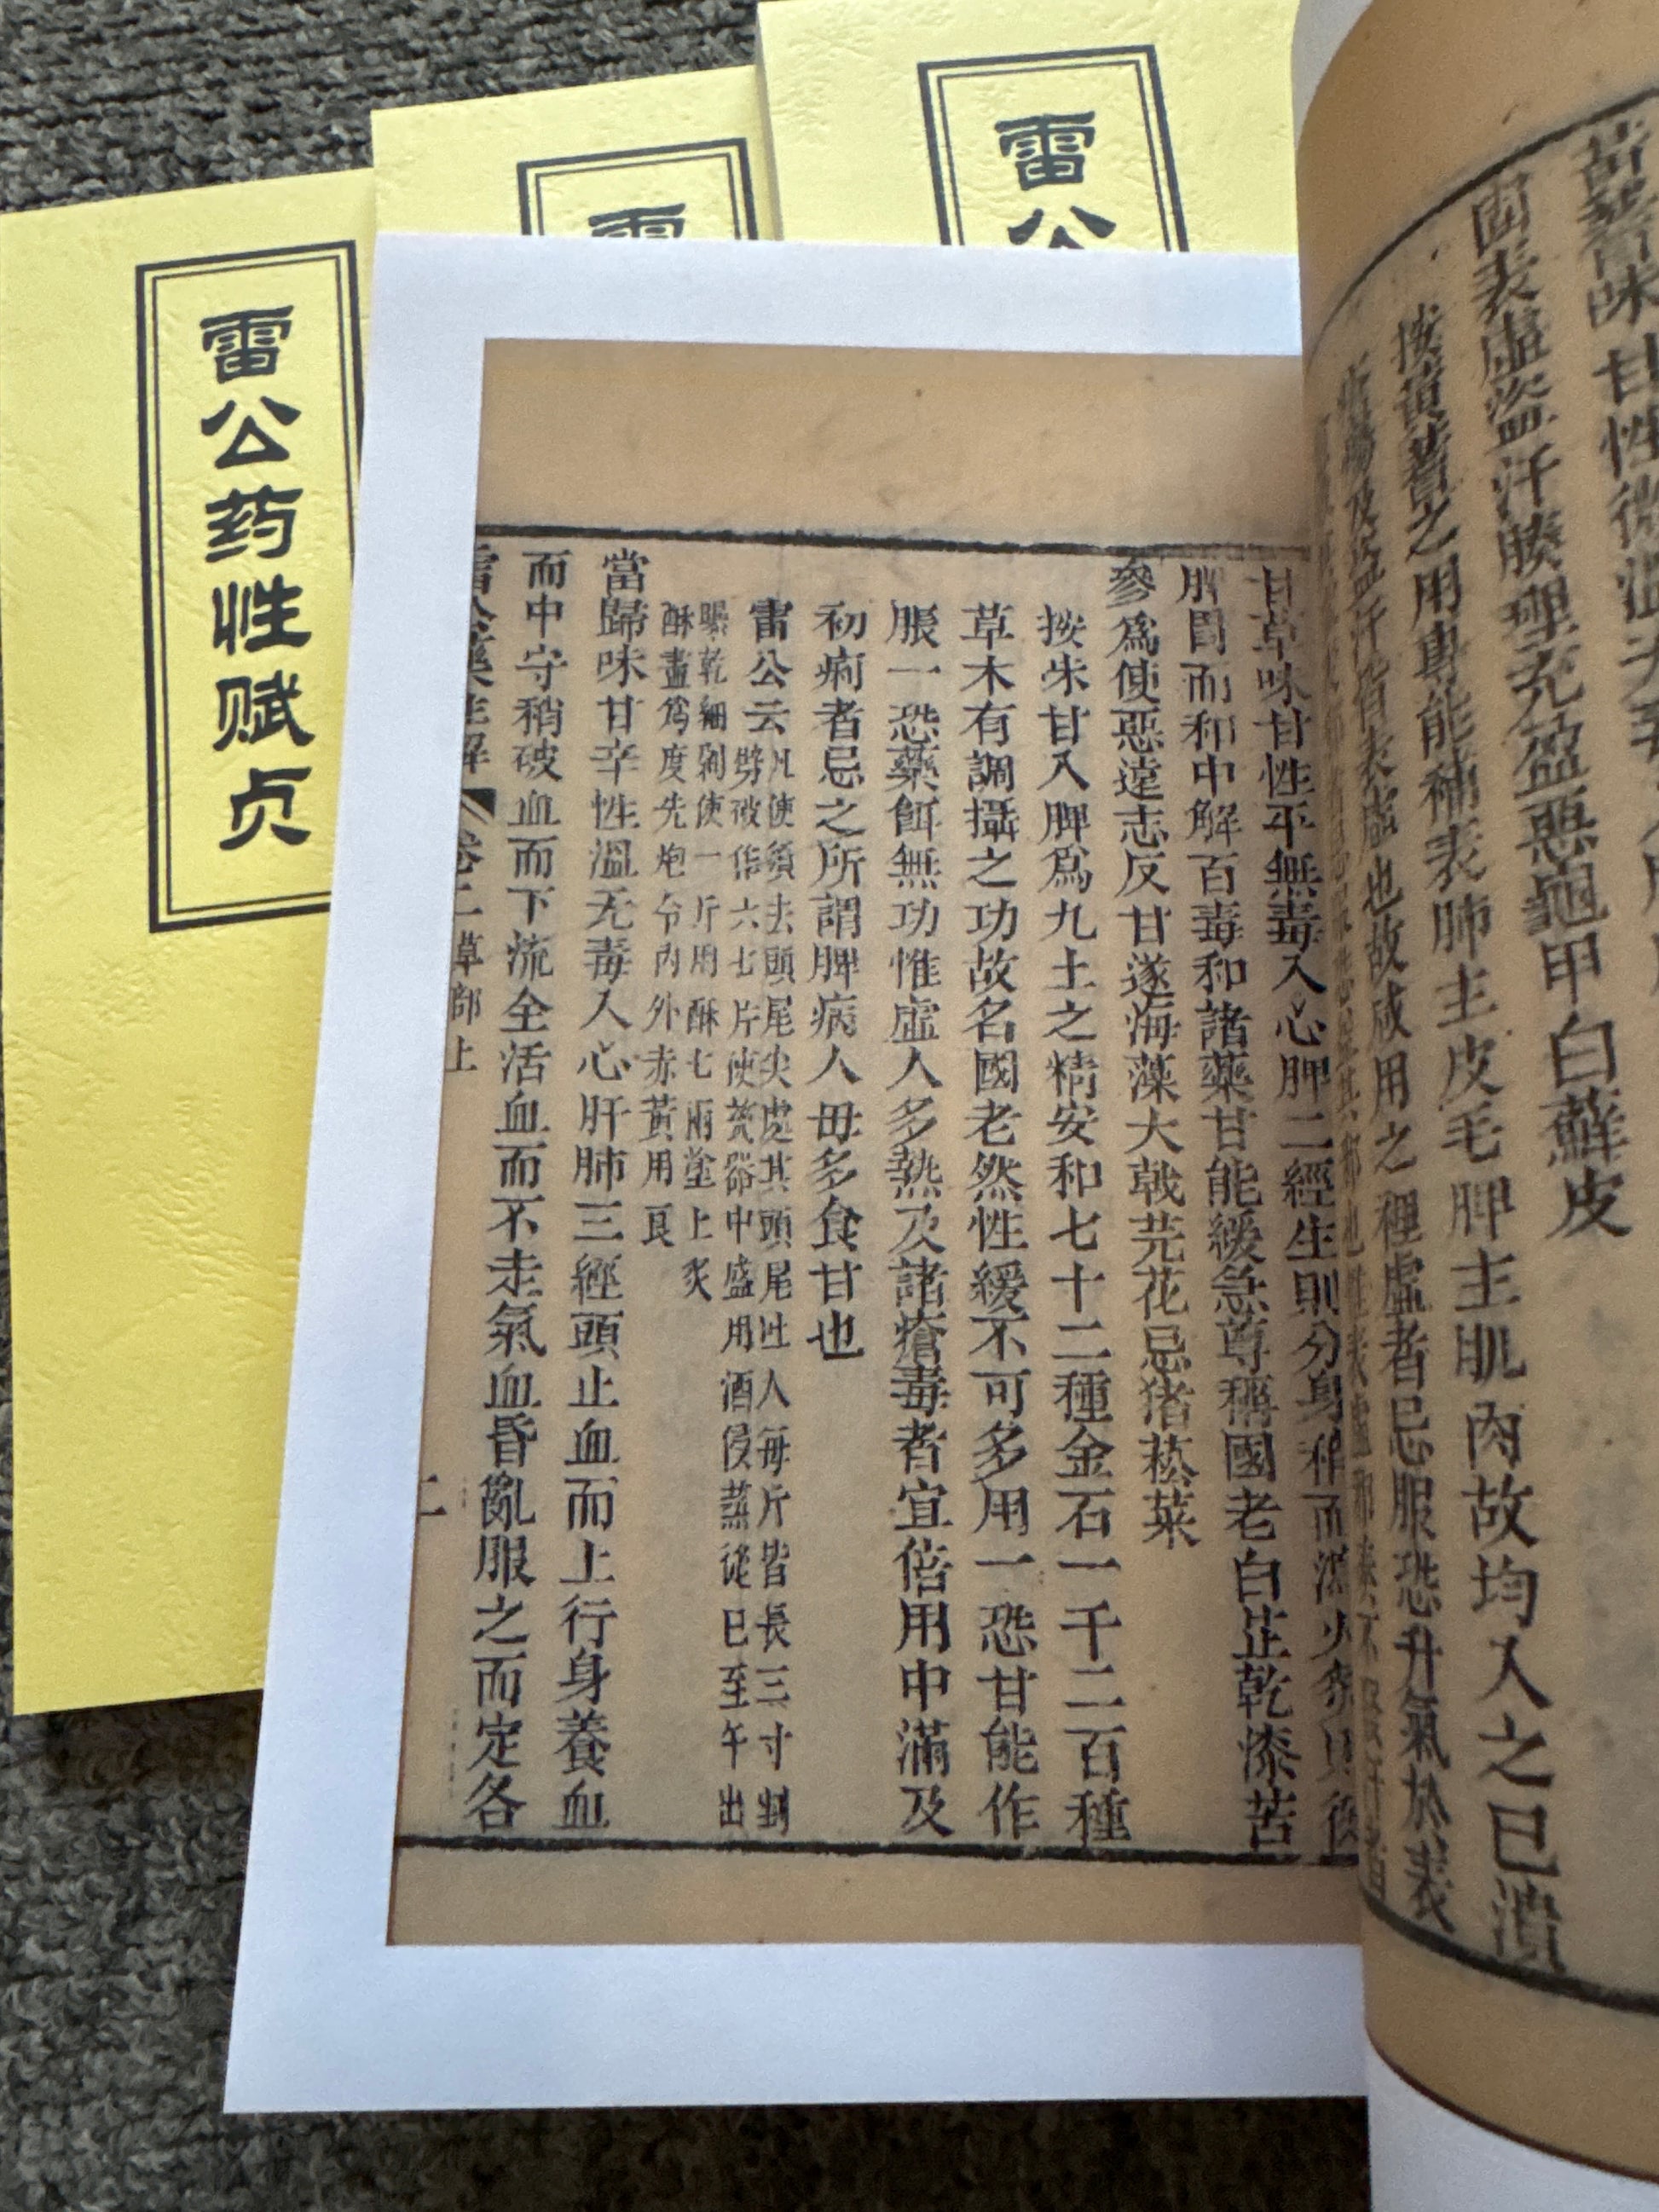 雷公药性赋贞
雷
雷公
味甘性微溫无毒入
固表虛盜汗腠理充盈惡龜甲白蘚皮
按黃蓍之用專能補表肺主皮毛脾主肌肉故均入之已潰
表虛也故咸用之裡虛者忌服恐升氣於表
甘草味甘性平無毒入心脾二經生則分身稍而瀉火炙則
脾胃而和中解百毒和諸藥甘能緩急尊稱國老白芷乾漆苦
參為使惡遠志反甘遂海藻大戟芫花忌猪菘菜
按朱甘入脾為九土之精安和七十二種金石一千二百種
草木有調攝之功故名國老然性緩不可多用一恐甘能作
脹一恐藥餌無功惟虛人多熱及諸瘡毒者宜倍用中滿及
初痢者忌之所謂脾病人毋多食甘也
雷公云凡使須去頭尾尖處其頭尾吐人每斤皆長三寸剉
劈破作六七片使瓷器中盛用酒侵蒸從巳至午出
曝乾細剉使一斤用酥七兩塗上炙
酥盡為度先炮令內外赤黃用良
當歸味甘辛性溫无毒入心肝肺三經頭止血而上行身養血
而中守稍破血而下流全活血而不走氣血昏亂服之而定各
雷公藥性解 卷二 草部上 二